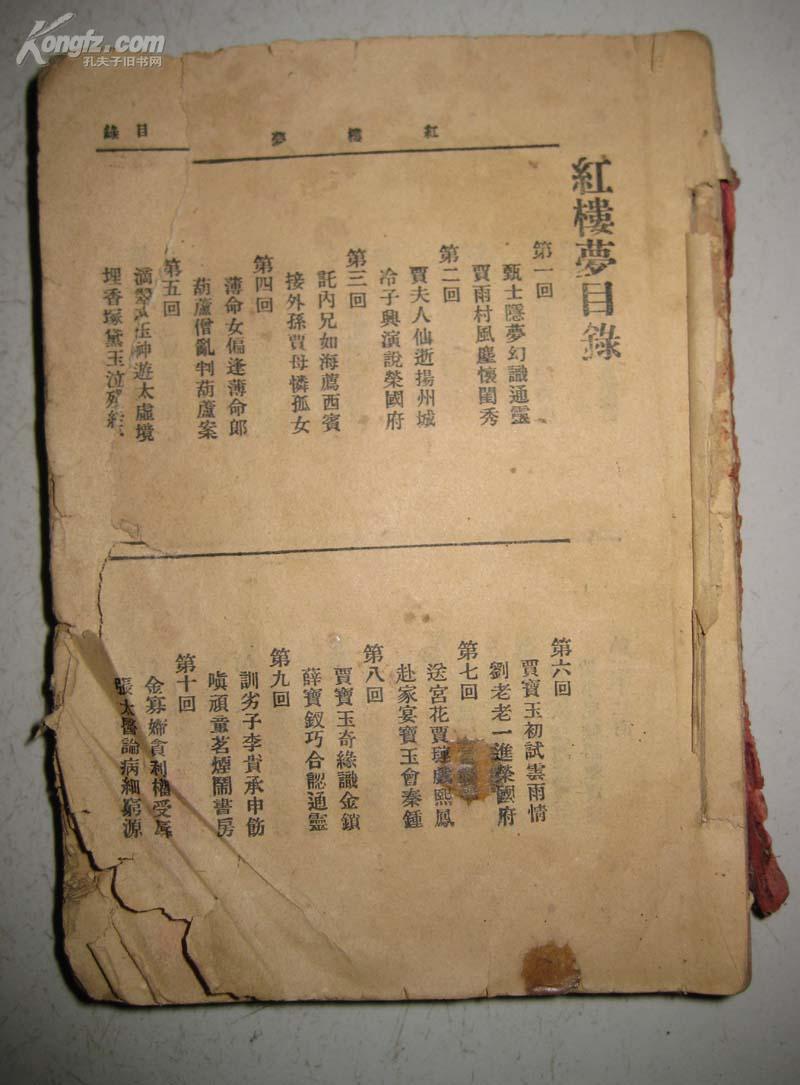 Kongfz.com
孔夫子旧书网
紅樓夢
目錄
紅樓夢目錄
第一回
甄士隱夢幻識通靈
賈雨村風塵懷閨秀
第二回
賈夫人仙逝揚州城
冷子興演說榮國府
第三回
託內兄如海薦西賓
接外孫賈母憐孤女
第四回
薄命女偏逢薄命郎
葫蘆僧亂判葫蘆案
第五回
玉神遊太虛境
埋香塚黛玉泣
第六回
賈寶玉初試雲雨情
劉老老一進榮國府
第七回
送宮花賈璉戲熙鳳
赴家宴寶玉會秦鍾
第八回
賈寶玉奇緣識金鎖
薛寶釵巧合認通靈
第九回
訓劣子李貴承申飭
嗔頑童茗煙鬧書房
第十回
金寡婦貪利權受辱
張太醫論病細窮源